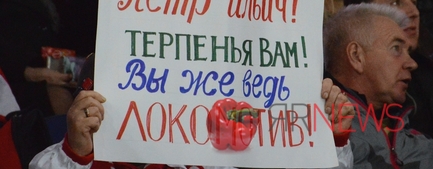 ПЁТР ИЛЬИЧ!
ТЕРПЕНЬЯ ВАМ!
ВЫ ЖЕ ВЕДЬ
ЛОКОМОТИВ!
NEWS